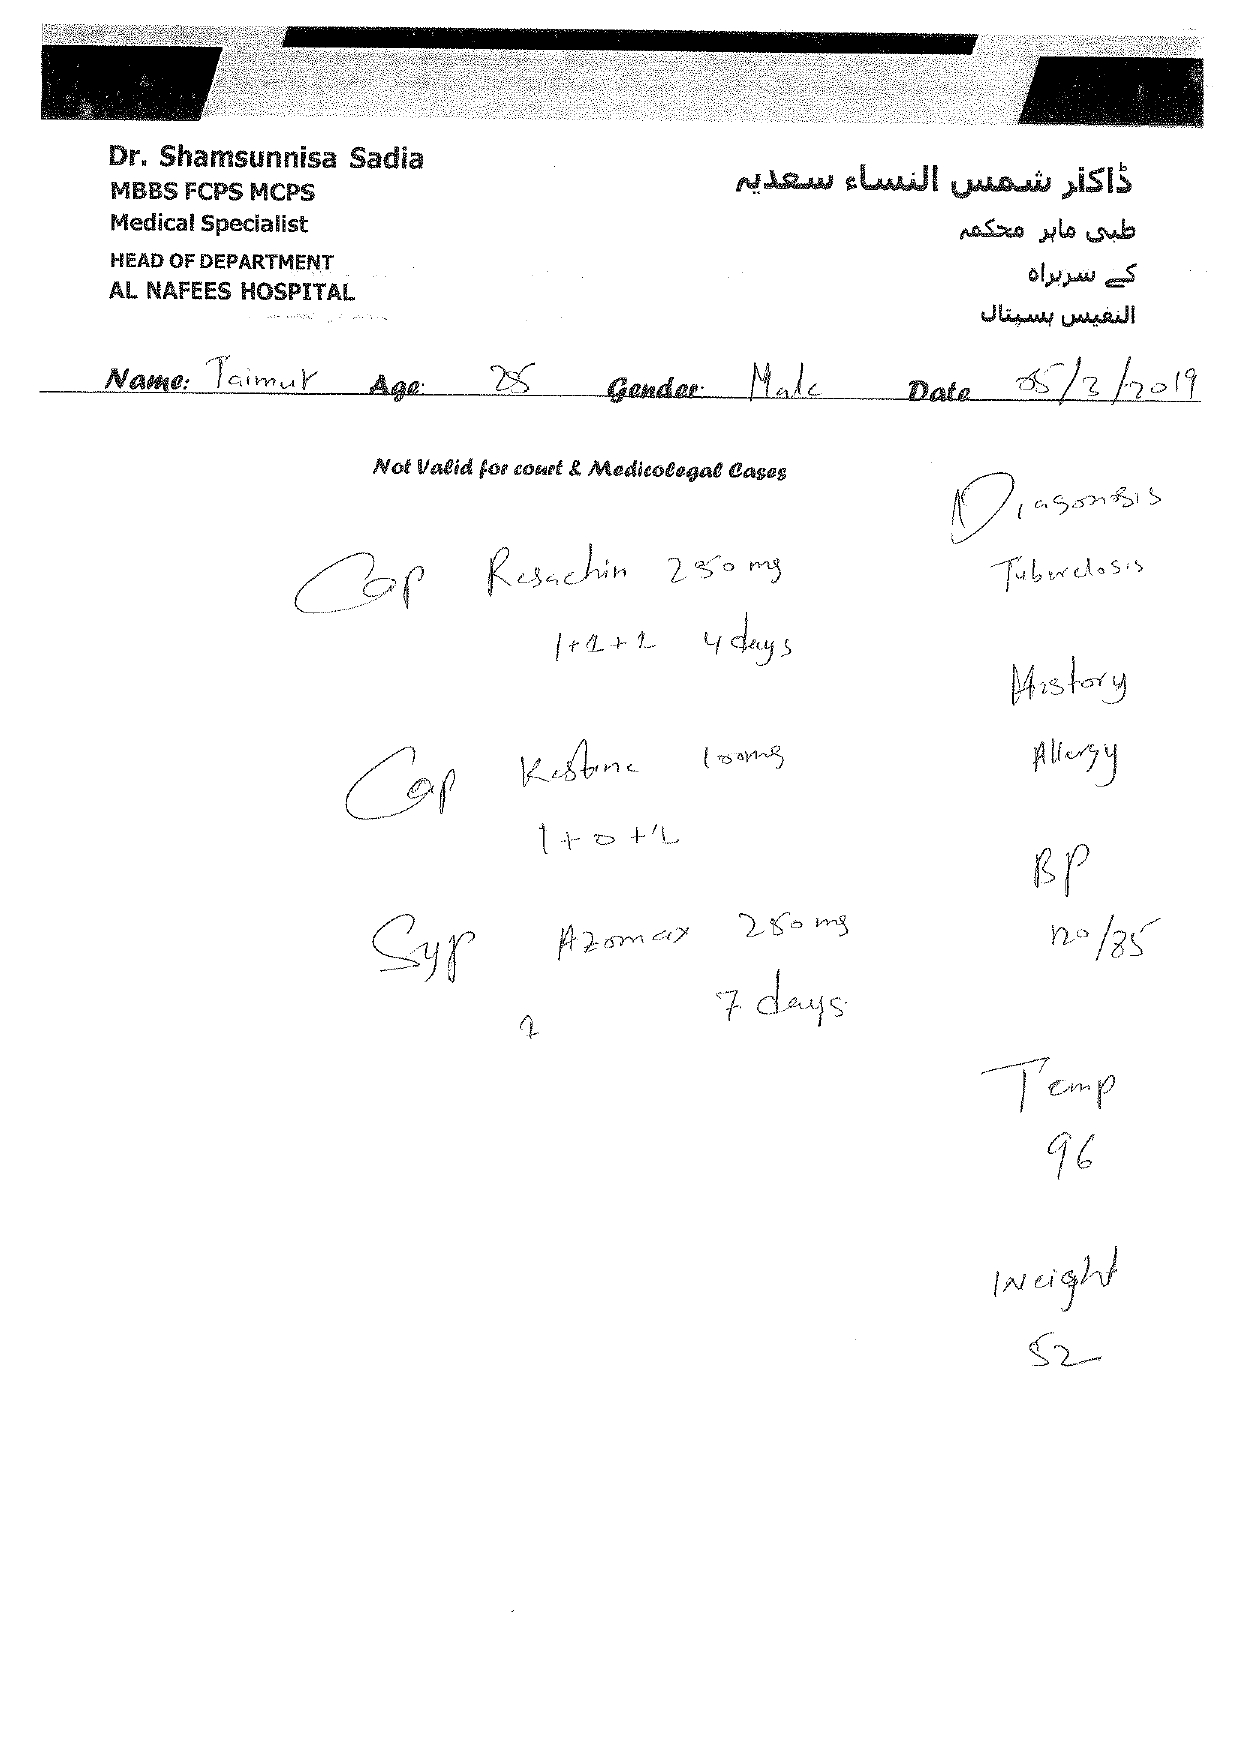 Dr. Shamsunnisa Sadia
MBBS FCPS MCPS
Medical Specialist
HEAD OF DEPARTMENT
AL NAFEES HOSPITAL
ڈاکٹر شمس النساء سعدیہ
طبی ماہر محکمہ
کے سربراہ
النفیس ہسپتال
Name: Taimur Age: 25 Gender: Male Date 05/3/2019
Not Valid for court & Medicolegal Cases
Cap Resachin 250mg
1+1+1 4 days
Cap Kestine 100mg
1+0+1
Syp Azomax 250mg
7 days
1
Diagonosis
Tuberclosis
History
Allergy
BP
120/85
Temp
96
Weight
52